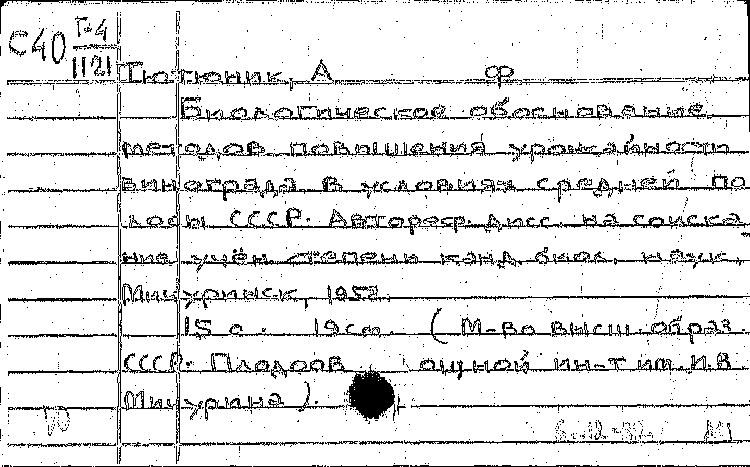 С40 Г-4
1121
Тютюник, А Ф
Биологическое обоснование
методов повышения урожайности
винограда в условиях средней по
лосы СССР. Автореф. дисс. на соиска
ние учён степени канд. биол. наук.
Мичуринск, 1952.
15 с. 19см. (М-во высш. образ.
СССР. Плодоов ощной ин-т им. И.В
Мичурина).